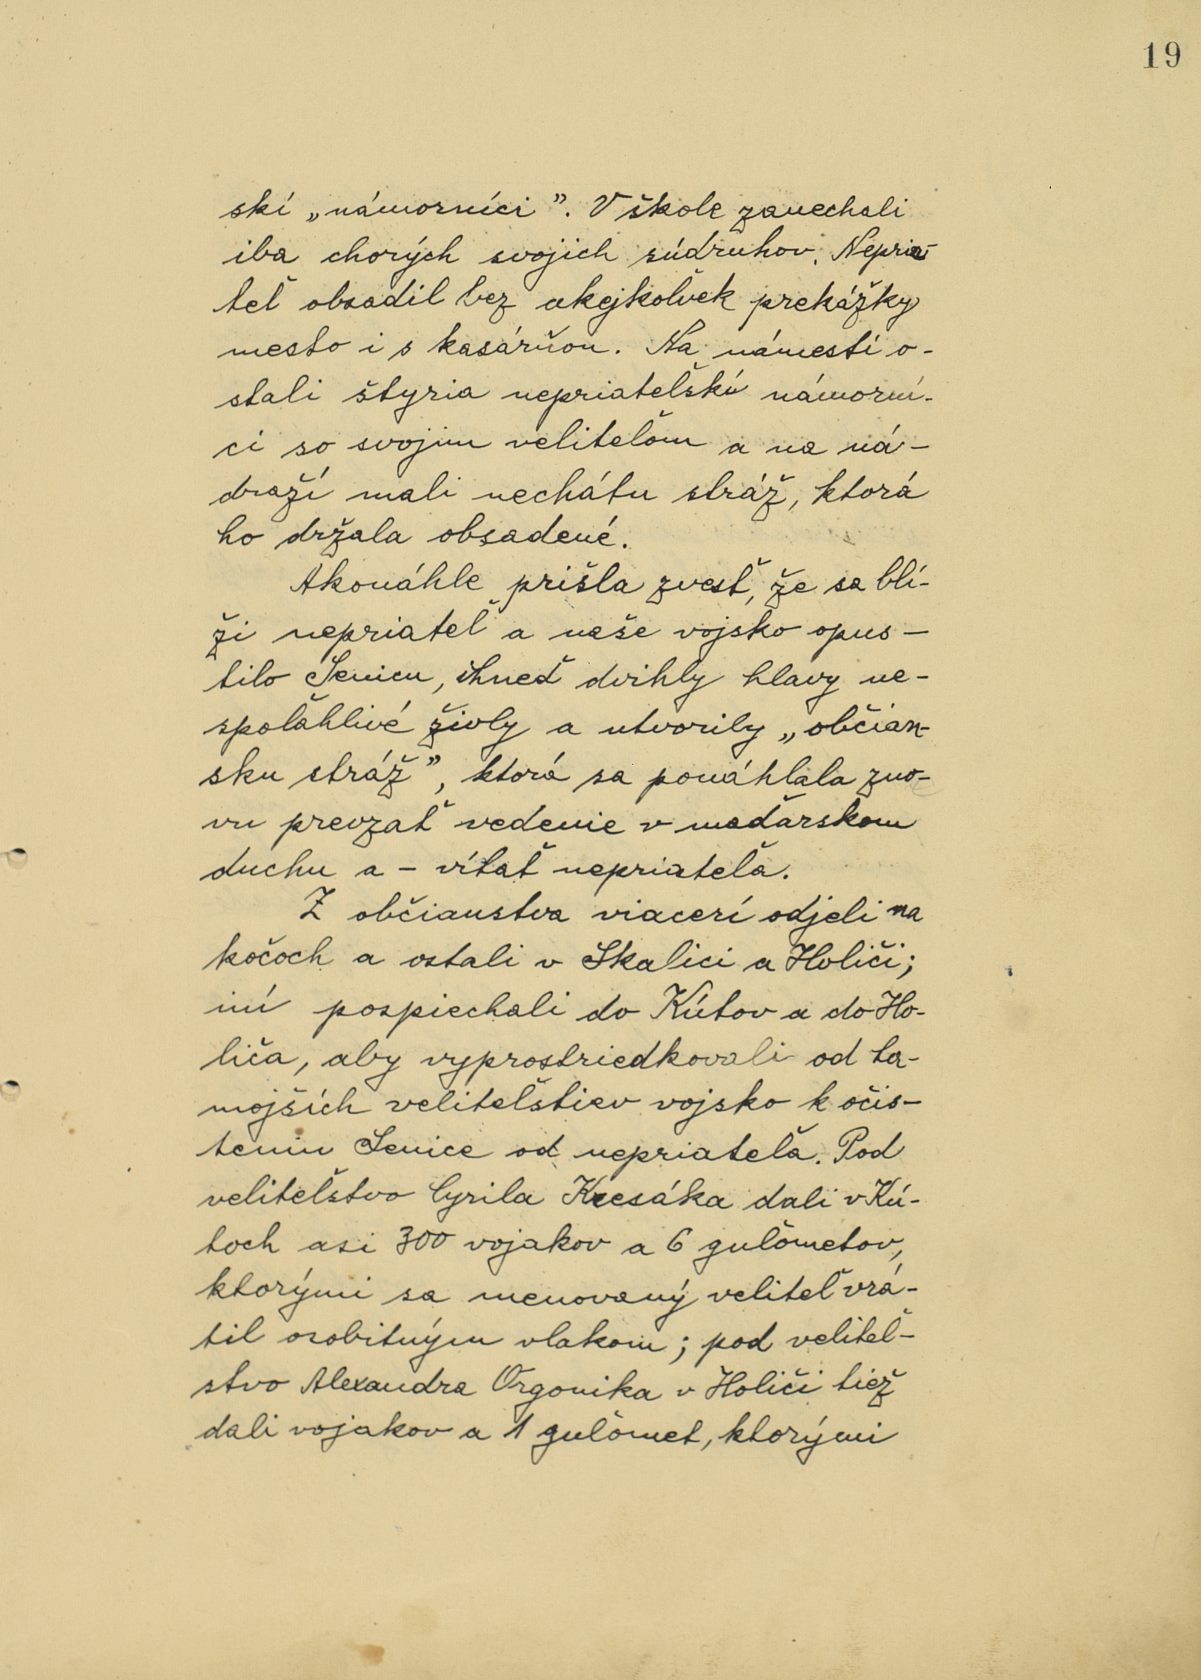 19
skí „námorníci". V škole zanechali
iba chorých svojich súdruhov. Nepria-
teľ obsadil bez akejkoľvek prekážky
mesto i s kasárňou. Na námestí o-
stali štyria nepriateľskí námorní-
ci so svojim veliteľom a na ná-
draží mali nechátu stráž, ktorá
ho držala obsadené.
Akonáhle prišla zvesť, že sa blí-
ži nepriateľ a naše vojsko opus-
tilo Senicu, ihneď dvihly hlavy ne-
spoľahlivé živly a utvorily „občian-
sku stráž", ktorá sa ponáhlala zno-
vu prevzať vedenie v maďarskom
duchu a - vítať nepriateľa.
Z občianstva viacerí odjeli na
kočoch a ostali v Skalici a Holíči;
iní pospiechali do Kútov a do Ho-
líča, aby vyprostriedkovali od ta-
mojších veliteľstiev vojsko k očis-
teniu Senice od nepriateľa. Pod
veliteľstvo Cyrila dali v Kú-
toch asi 300 vojakov a 6 guľometov,
ktorými sa menovaný veliteľ vrá-
til osobitným vlakom; pod veliteľ-
stvo Alexandra Orgonika v Holíči tiež
dali vojakov a 1 guľomet, ktorými